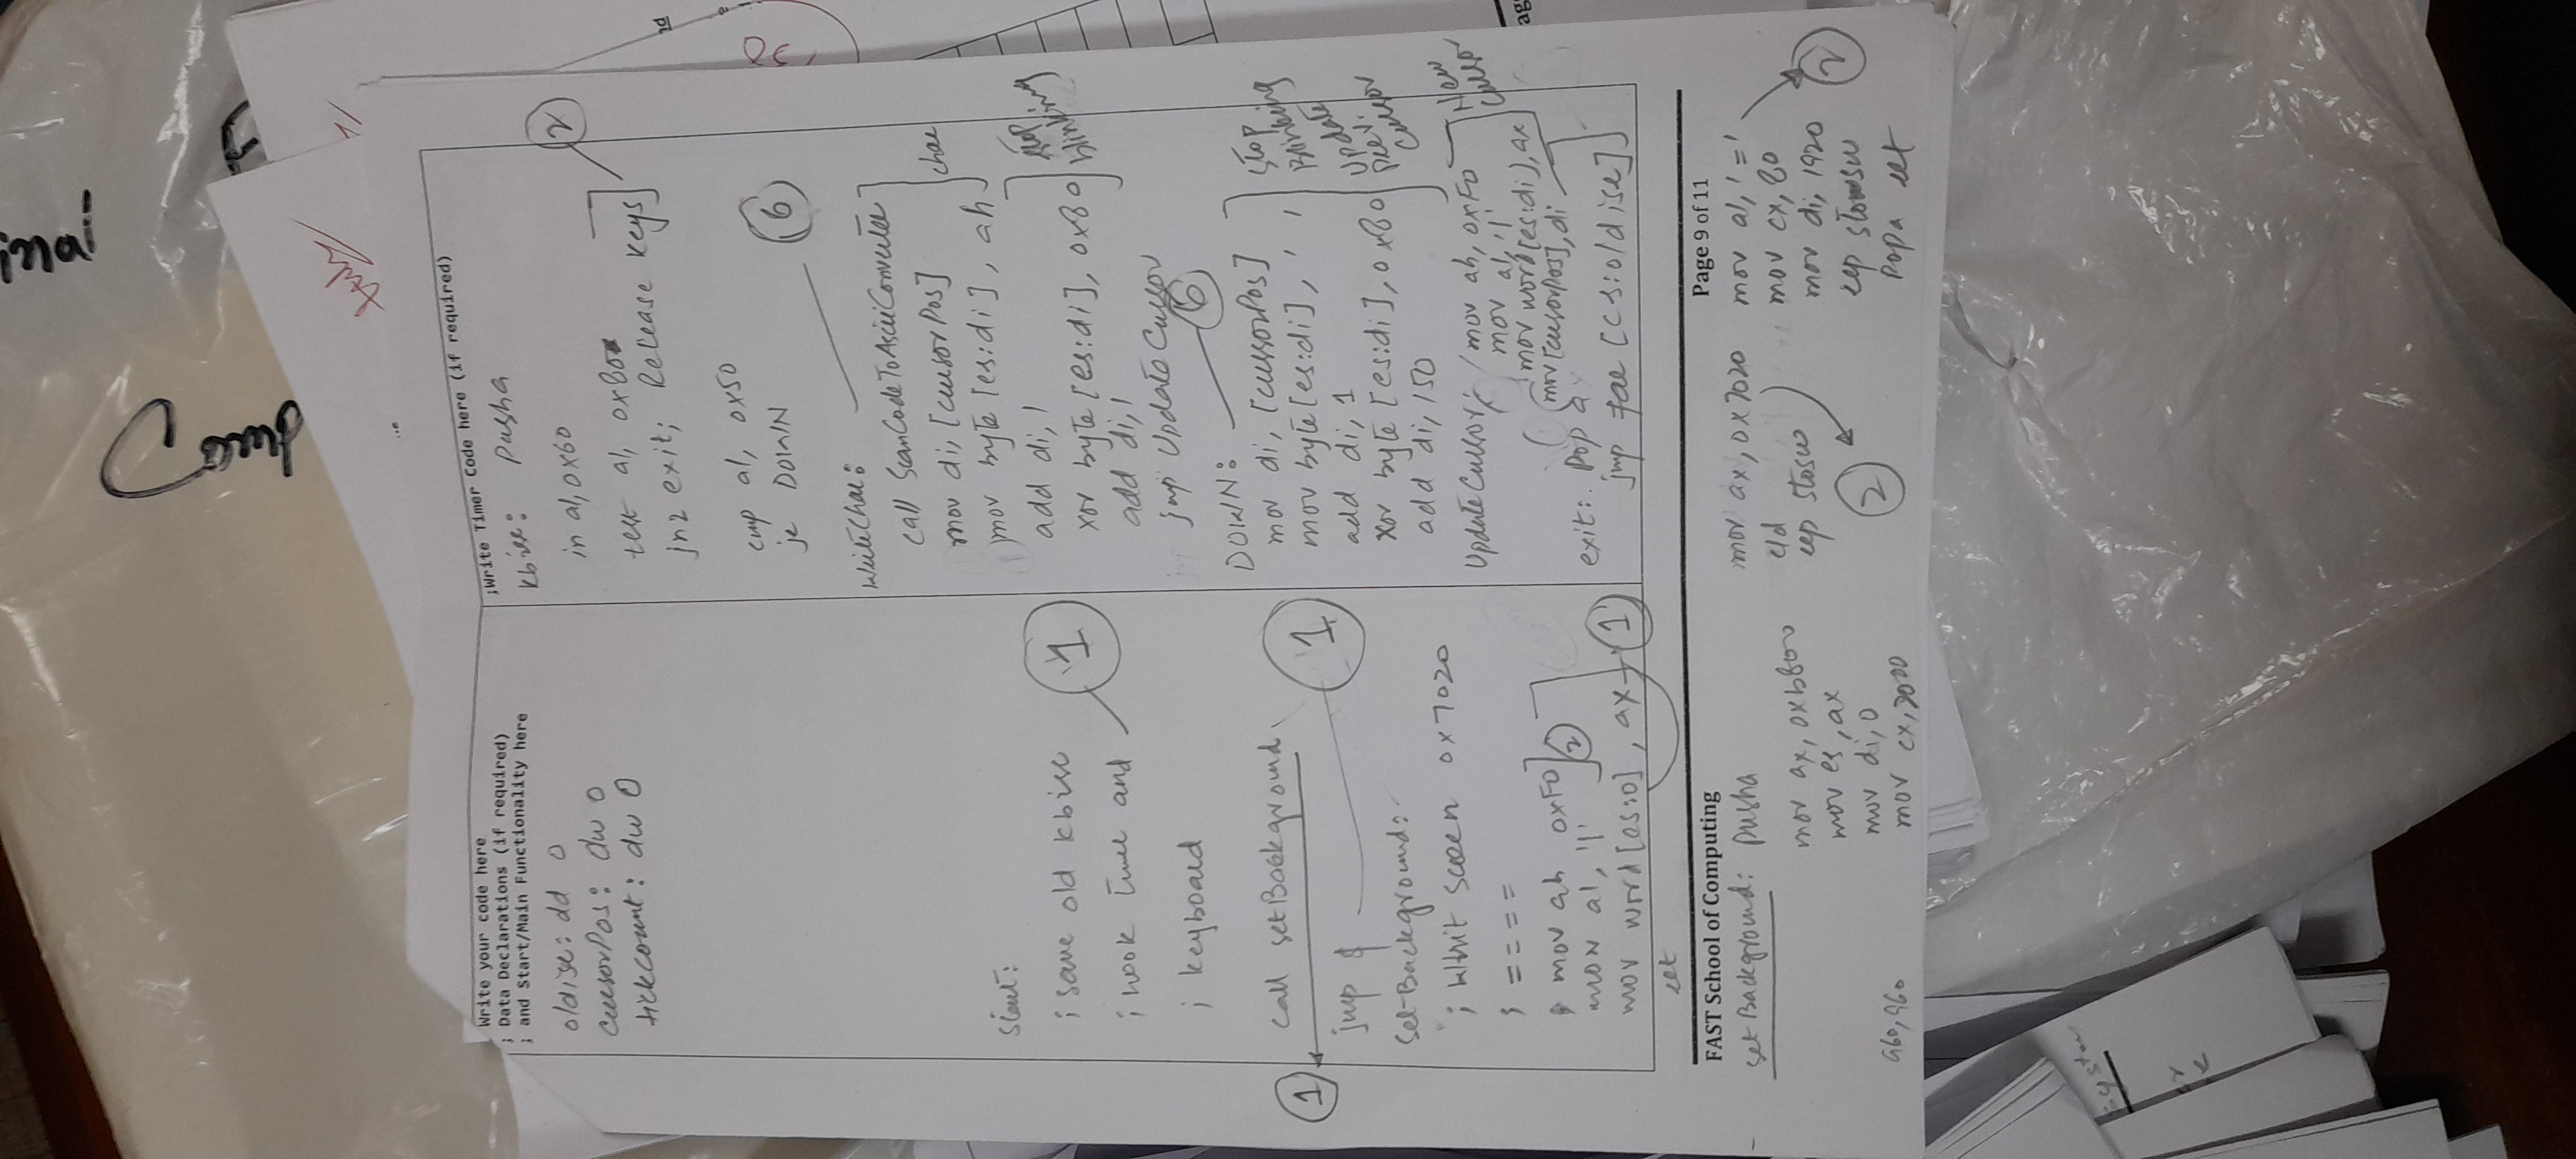 inal
Comp
Write your code here
; Data Declarations (if required)
; and Start/Main Functionality here
oldisr: dd 0
cursorPos: dw 0
tickcount: dw 0
Start:
; save old kbisr
; hook timer and
; keyboard
1
call setBackground
1
jmp $
1
SetBackground:
; Whit screen 0x7020
; ====
mov ah 0xF0
mov al, '|'
2
mov word [es:0], ax
1
ret
;Write Timer Code here (if required)
kbisr: Pusha
in al, 0x60
test al, 0x80
jnz exit; Release keys
2
cmp al, 0x50
je DOWN
6
WriteChar:
call ScanCodeToAsciiConverter
mov di, [cursorPos]
mov byte [es:di], ah
char
add di, 1
xor byte [es:di], 0x80
add di, 1
stop
blinking
jmp UpdateCursor
DOWN:
6
mov di, [cursorPos]
mov byte [es:di], ' '
add di, 1
xor byte [es:di], 0x80
add di, 150
Stop
Blinking
Update
Prev.
Cursor
UpdateCursor: mov ah, 0xF0
mov al, '|'
mov word [es:di], ax
mov [cursorPos], di
New
Cursor
exit: Popa
jmp far [cs:oldisr]
FAST School of Computing
Page 9 of 11
set Background: Pusha
mov ax, 0xb800
mov es, ax
mov di, 0
mov cx, 2000
960, 960
mov ax, 0x7020
cld
rep stosw
2
mov al, '='
mov cx, 80
mov di, 1920
rep stosw
popa ret
2